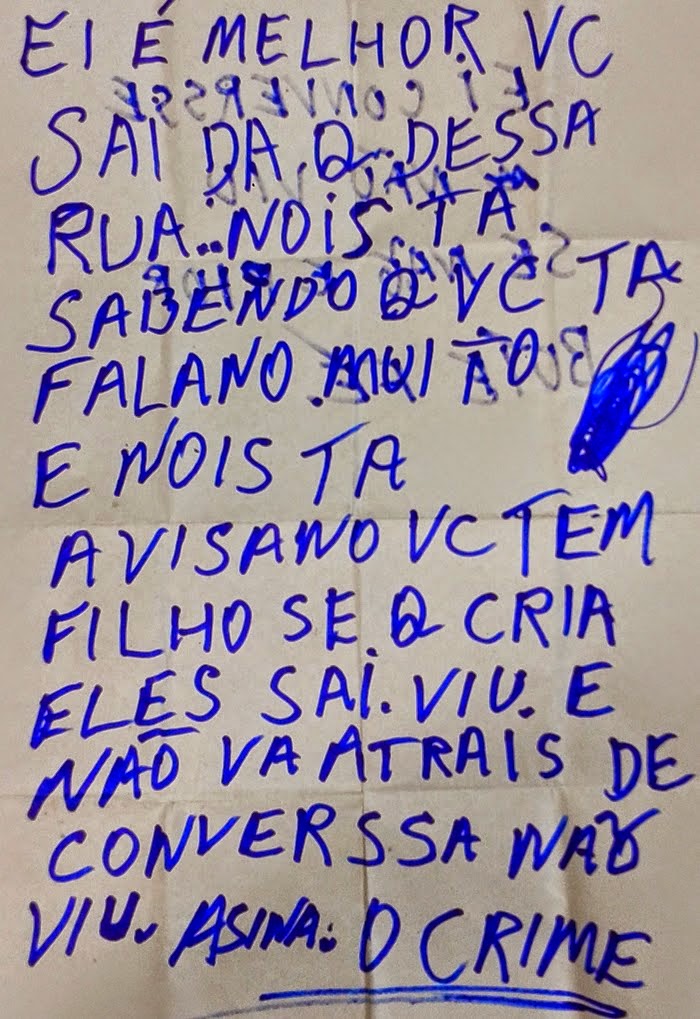 EI É MELHOR VC
SAI DA Q DESSA
RUA..NOIS TA
SABENDO Q VC TA
FALANO.AQUI
E NOIS TA
AVISANO VC TEM
FILHO SE.Q CRIA
ELES SAI.VIU. E
NÃO VA ATRAIS DE
CONVERSSA NAO
VIU. ASINA: O CRIME